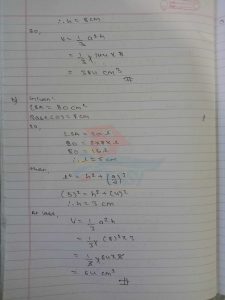 ∴ h = 8 cm
So,
V = 1/3 a²h
= 1/3 × 144 × 8
= 384 cm³
Given:
LSA = 80 cm²
So,
LSA = 2al
80 = 2×8×l
80 = 16l
∴ l = 5 cm
then,
l² = h² + (a/2)²
(5)² = h² + (4)²
∴ h = 3 cm
At last,
V = 1/3 a²h
= 1/3 × (8)² × 3
= 1/3 × 64 × 3
= 64 cm³